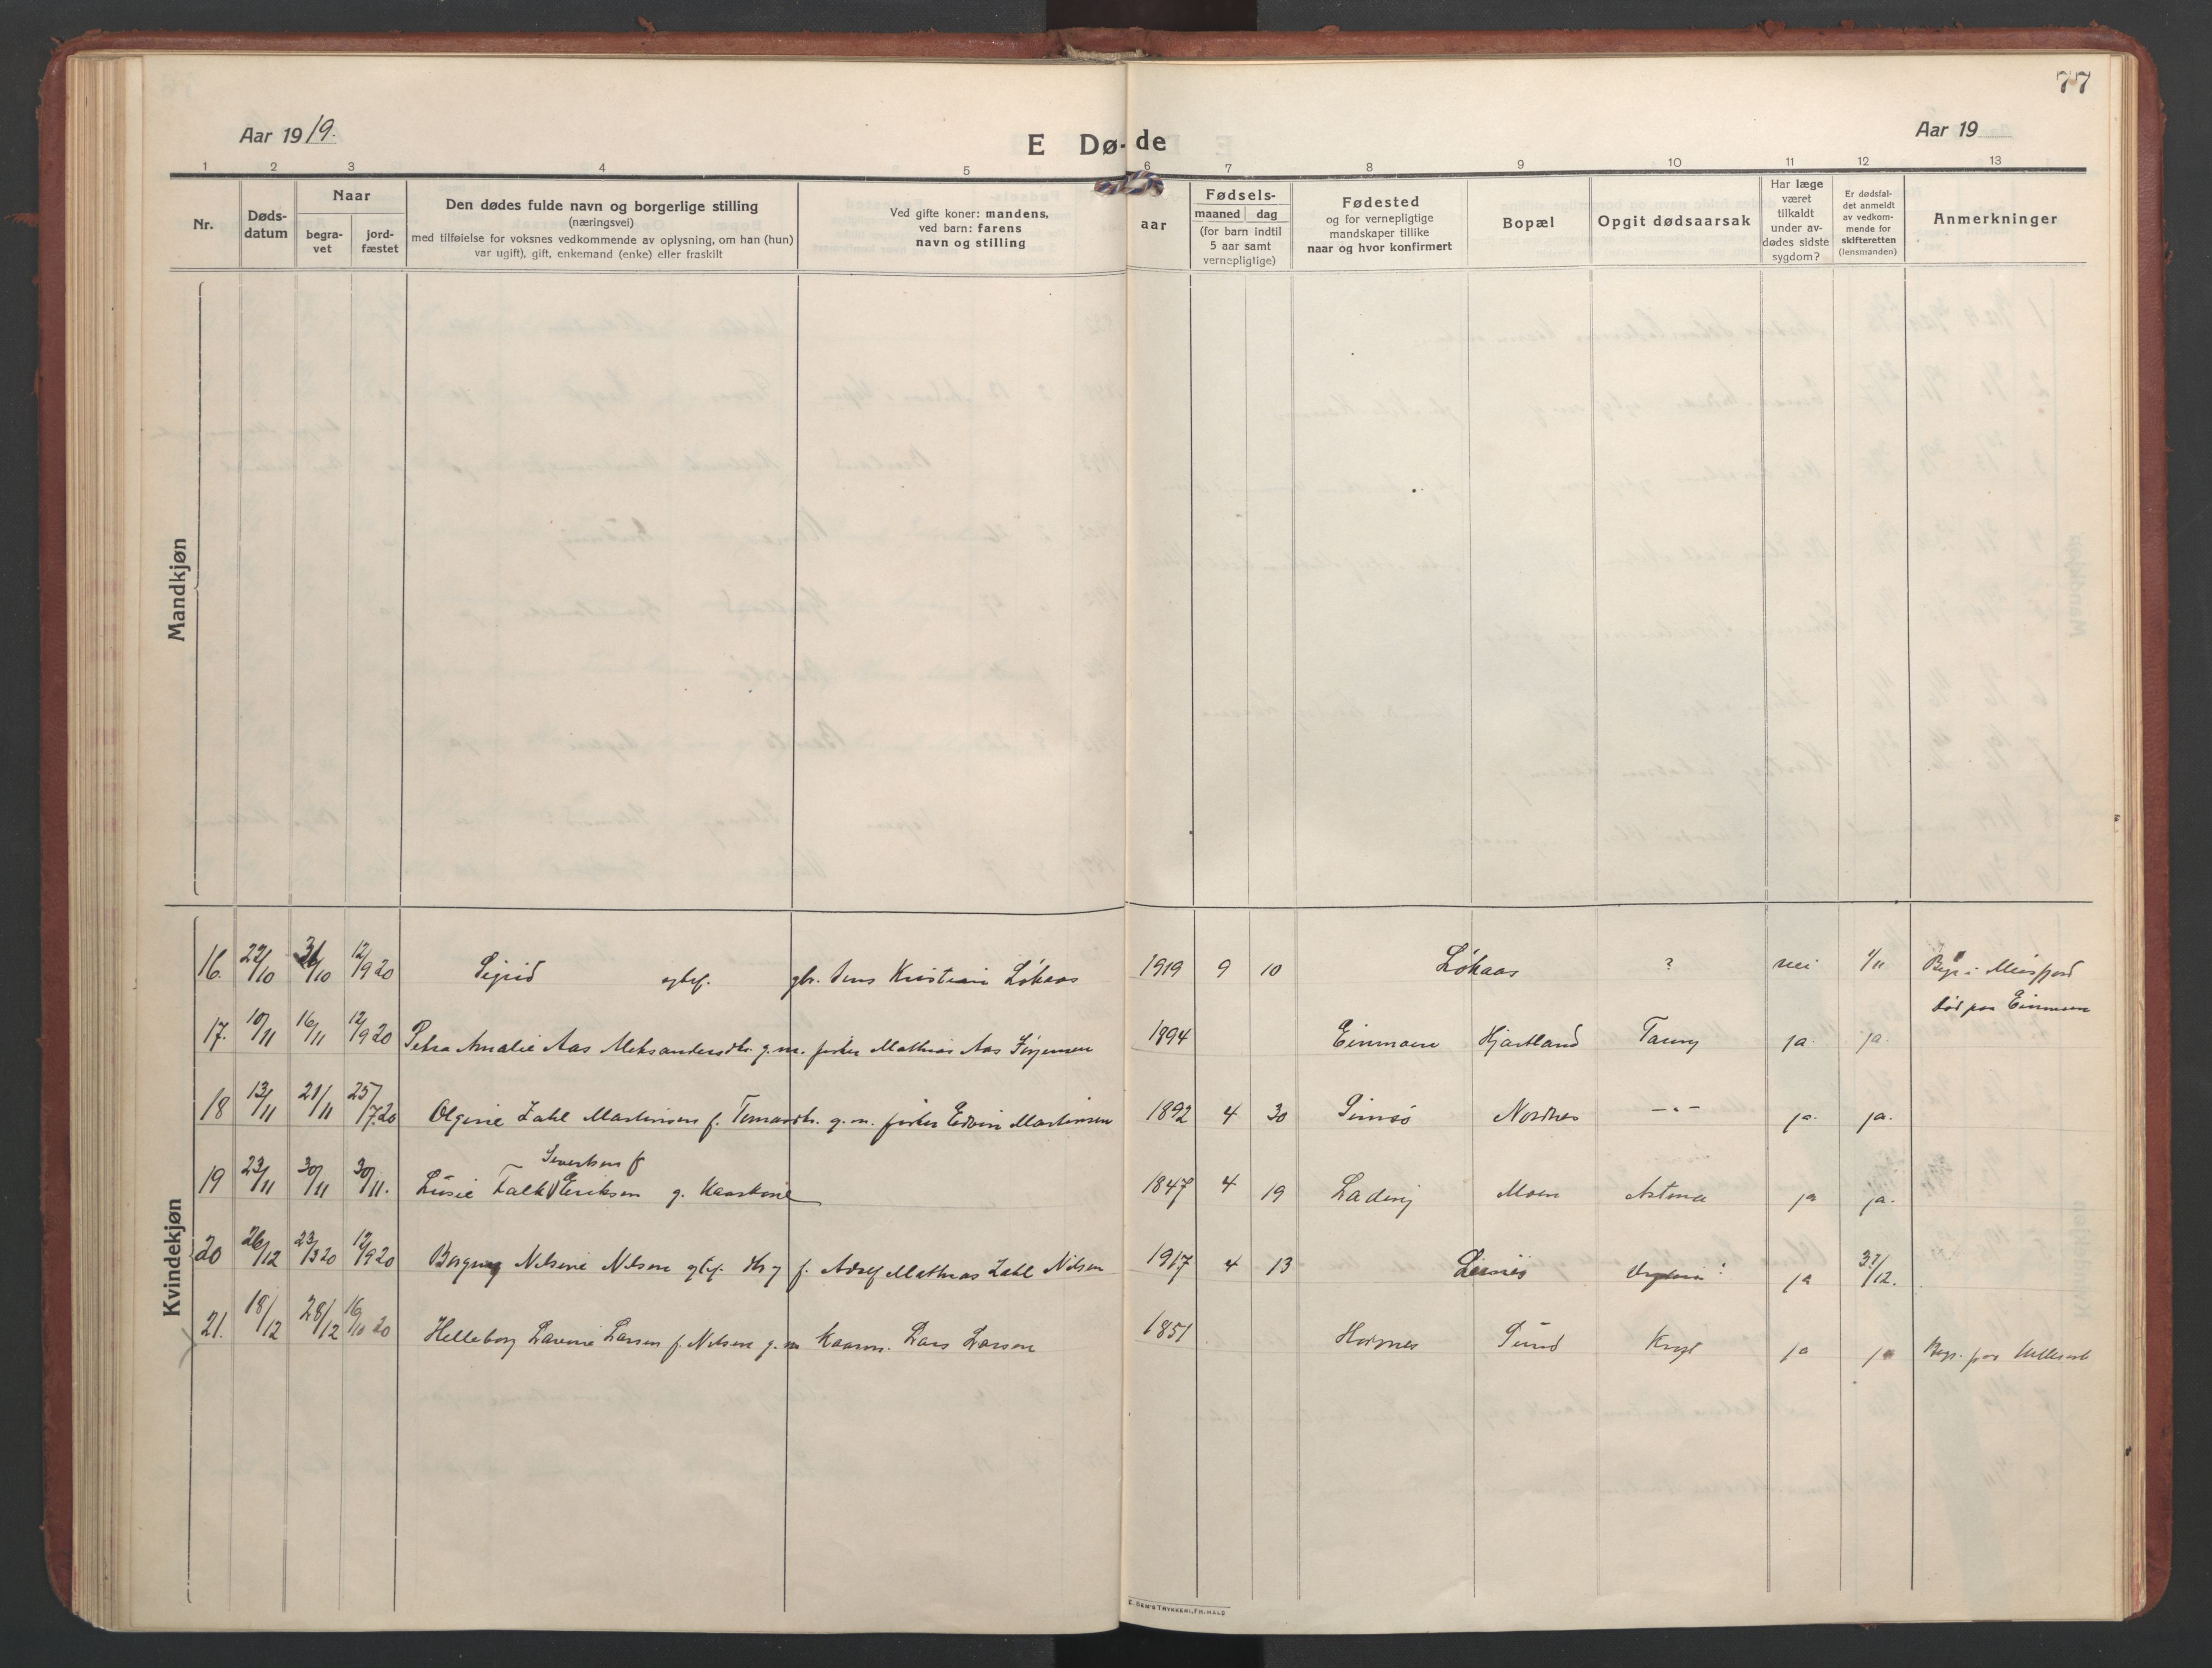 77
Aar 1919.
E Dø- de
Aar 19
1 2 3 4 5 6 7 8 9 10 11 12 13
Nr.
Døds-
datum
Naar
begra-
vet
jord-
fæstet
Den dødes fulde navn og borgerlige stilling
(næringsvei)
med tilføielse for voksnes vedkommende av oplysning, om han (hun)
var ugift), gift, enkemand (enke) eller fraskilt
Ved gifte koner: mandens,
ved barn: farens
navn og stilling
aar
Fødsels-
maaned dag
(for barn indtil
5 aar samt
vernepligtige)
Fødested
og for vernepligtige
mandskaper tillike
naar og hvor konfirmert
Bopæl
Opgit dødsaarsak
Har læge
været
tilkaldt
under av-
dødes sidste
sygdom?
Er dødsfal-
det anmeldt
av vedkom-
mende for
skifteretten
(lensmanden)
Anmerkninger
Mandkjøn
Kvindekjøn
16. 22/10 31/10 12/9 20 Sigrid gbr. Jens Kristian Løkaas 1919 9 10 Løkaas ? nei 1/11
død paa Einmoen
17. 10/11 16/11 12/9 20 Petra Amalie Aas Aleksandersdtr. g.m. fisker Mathias Aas 1894 Einmoen Hjartland ja ja.
18 13/11 21/11 25/7 20 Olgine Zahl Martinsen f. g.m. fisker Edvin Martinsen 1892 4 30 Nordnes -"- ja. ja.
Severtsen f
19 23/11 30/11 30/11. Falk Eriksen g. 1847 4 19 Moen Astma ja ja.
20 26/12 23/3 20 12/9 20 Nilsine Nilsen f. Adolf Mathias Zahl Nilsen 1917 4 13 ja
21. 18/12 28/12 16/10 20 Helleborg Larsen f. Nilsen g.m Kaarm. Lars Larsen 1851 Sund ja ja
E. SEM'S TRYKKERI, FR.HALD